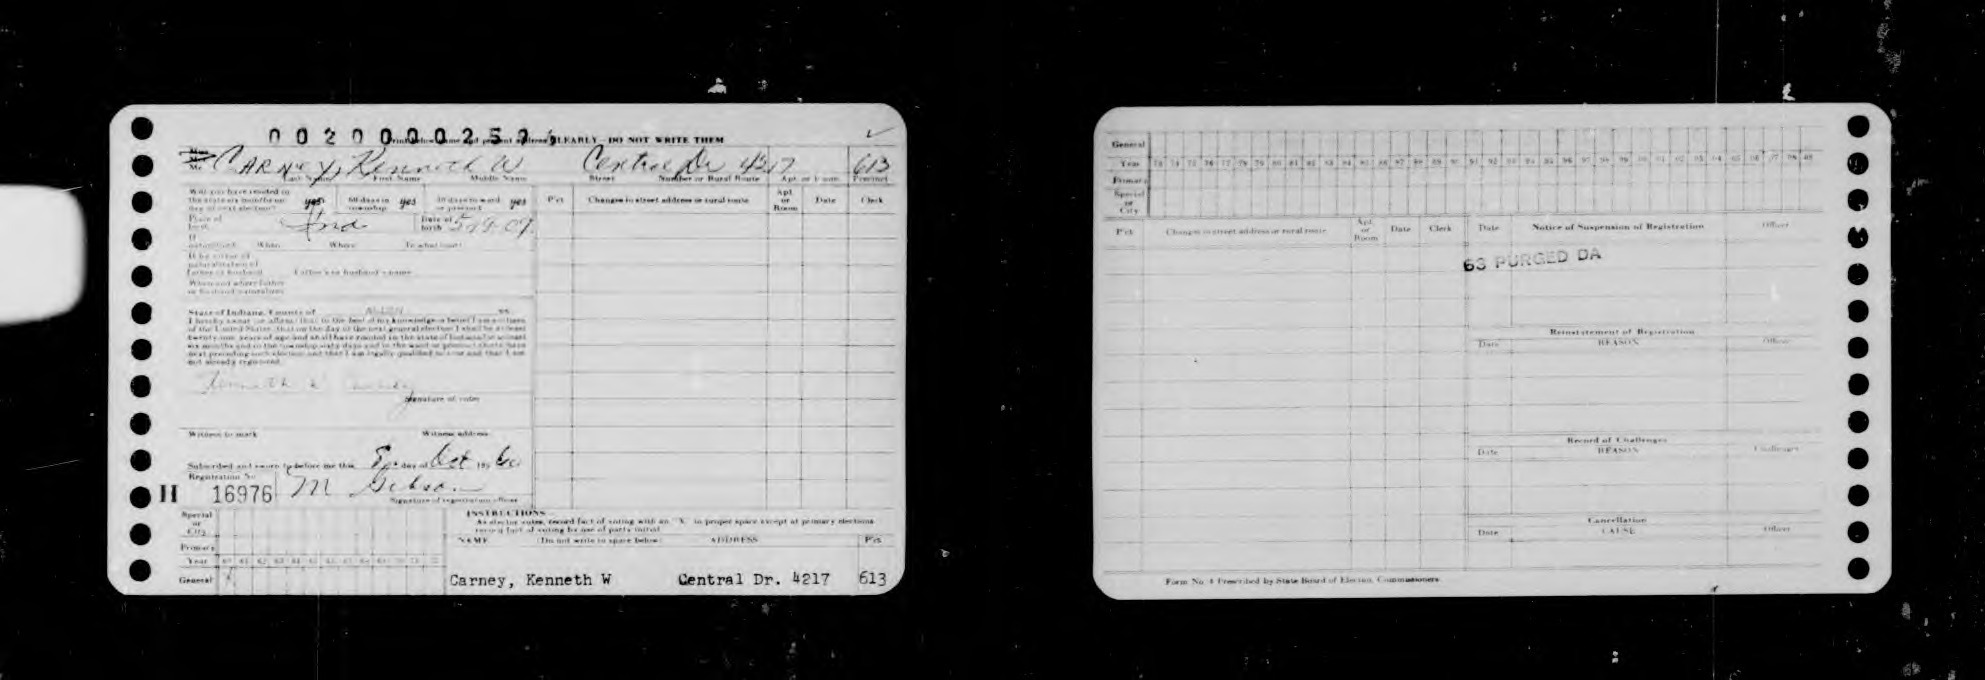 0020000257
Print below name and present address CLEARLY - DO NOT WRITE THEM
Mr. CARNEY, Kenneth W Central Dr 4217 613
Last Name First Name Middle Name Street Number or Rural Route Apt. or Room Precinct
Will you have resided in the state six months on day of next election? yes 60 days in township yes 30 days in ward or precinct yes
Place of birth Ind Date of birth
If naturalized: When Where In what court
If by virtue of naturalization of father or husband Father's or husband's name
When and where father or husband naturalized
P'ct Changes in street address or rural route Apt. or Room Date Clerk
State of Indiana, County of ALLEN ss:
I hereby swear (or affirm) that to the best of my knowledge and belief I am a citizen
of the United States, that on the day of the next general election I shall be at least
twenty-one years of age and shall have resided in the state of Indiana for at least
six months and in the township sixty days and in the ward or precinct thirty days
next preceding such election and that I am legally qualified to vote and that I am
not already registered.
Kenneth W Carney
Signature of voter
Witness to mark Witness address
Subscribed and sworn to before me this 8 day of Oct 19 60
Registration No.
H 16976 M Gibson
Signature of registration officer
Special or City
Primary
Year 60 61 62 63 64 65 66 67 68 69 70 71 72
General X
INSTRUCTIONS
As elector votes, record fact of voting with an "X" in proper space except at primary elections
record fact of voting by use of party initial
NAME (Do not write in space below) ADDRESS P'ct
Carney, Kenneth W Central Dr. 4217 613
General
Year 73 74 75 76 77 78 79 80 81 82 83 84 85 86 87 88 89 90 91 92 93 94 95 96 97 98 99 00 01 02 03 04 05 06 07 08 09
Primary
Special or City
P'ct Changes in street address or rural route Apt. or Room Date Clerk
Date Notice of Suspension of Registration Officer
63 PURGED DA
Reinstatement of Registration
Date REASON Officer
Record of Challenges
Date REASON Challenger
Cancellation
Date CAUSE Officer
Form No. 4 Prescribed by State Board of Election Commissioners